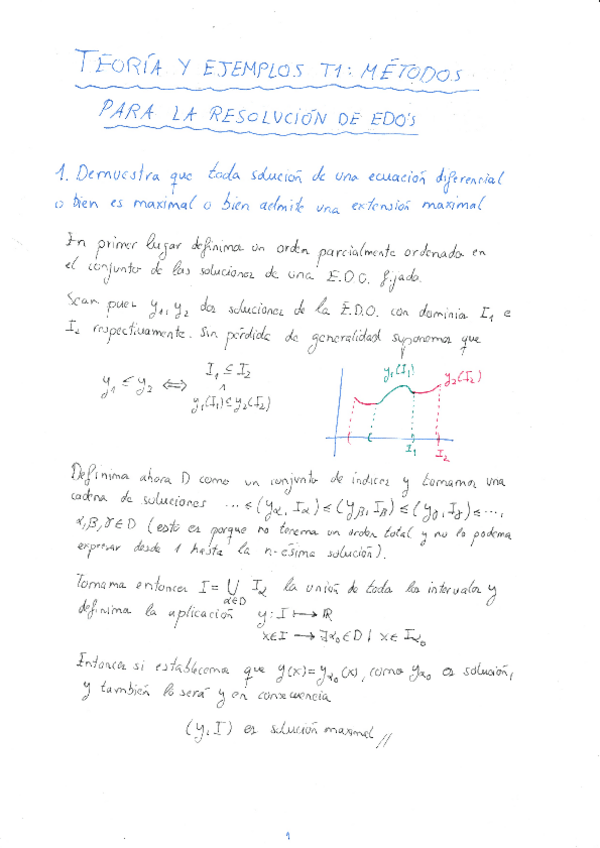 TEORÍA Y EJEMPLOS T1: MÉTODOS
PARA LA RESOLUCIÓN DE EDO'S
1. Demuestra que toda solución de una ecuación diferencial
o bien es maximal o bien admite una extensión maximal
En primer lugar definimos un orden parcialmente ordenado en
el conjunto de las soluciones de una E.D.O. fijada.
Sean pues y₁, y₂ dos soluciones de la E.D.O. con dominios I₁ e
I₂ respectivamente. Sin pérdida de generalidad suponemos que
y₁ ≤ y₂ ⟺ I₁ ⊆ I₂
∧
y₁(I₁) ⊆ y₂(I₂)
y₁(I₁)
y₂(I₂)
I₁
I₂
Definimos ahora D como un conjunto de índices y tomamos una
cadena de soluciones ... ≤ (yα, Iα) ≤ (yβ, Iβ) ≤ (yγ, Iγ) ≤ ...,
α, β, γ ∈ D (esto es porque no tenemos un orden total y no lo podemos
expresar desde 1 hasta la n-ésima solución).
Tomamos entonces I = ⋃ Iα la unión de todos los intervalos y
α∈D
definimos la aplicación y: I ↦ ℝ
x∈I → ∃α₀∈D | x∈Iα₀
Entonces si establecemos que y(x) = yα₀(x), como yα₀ es solución,
y también lo será y en consecuencia
(y, I) es solución maximal //
1